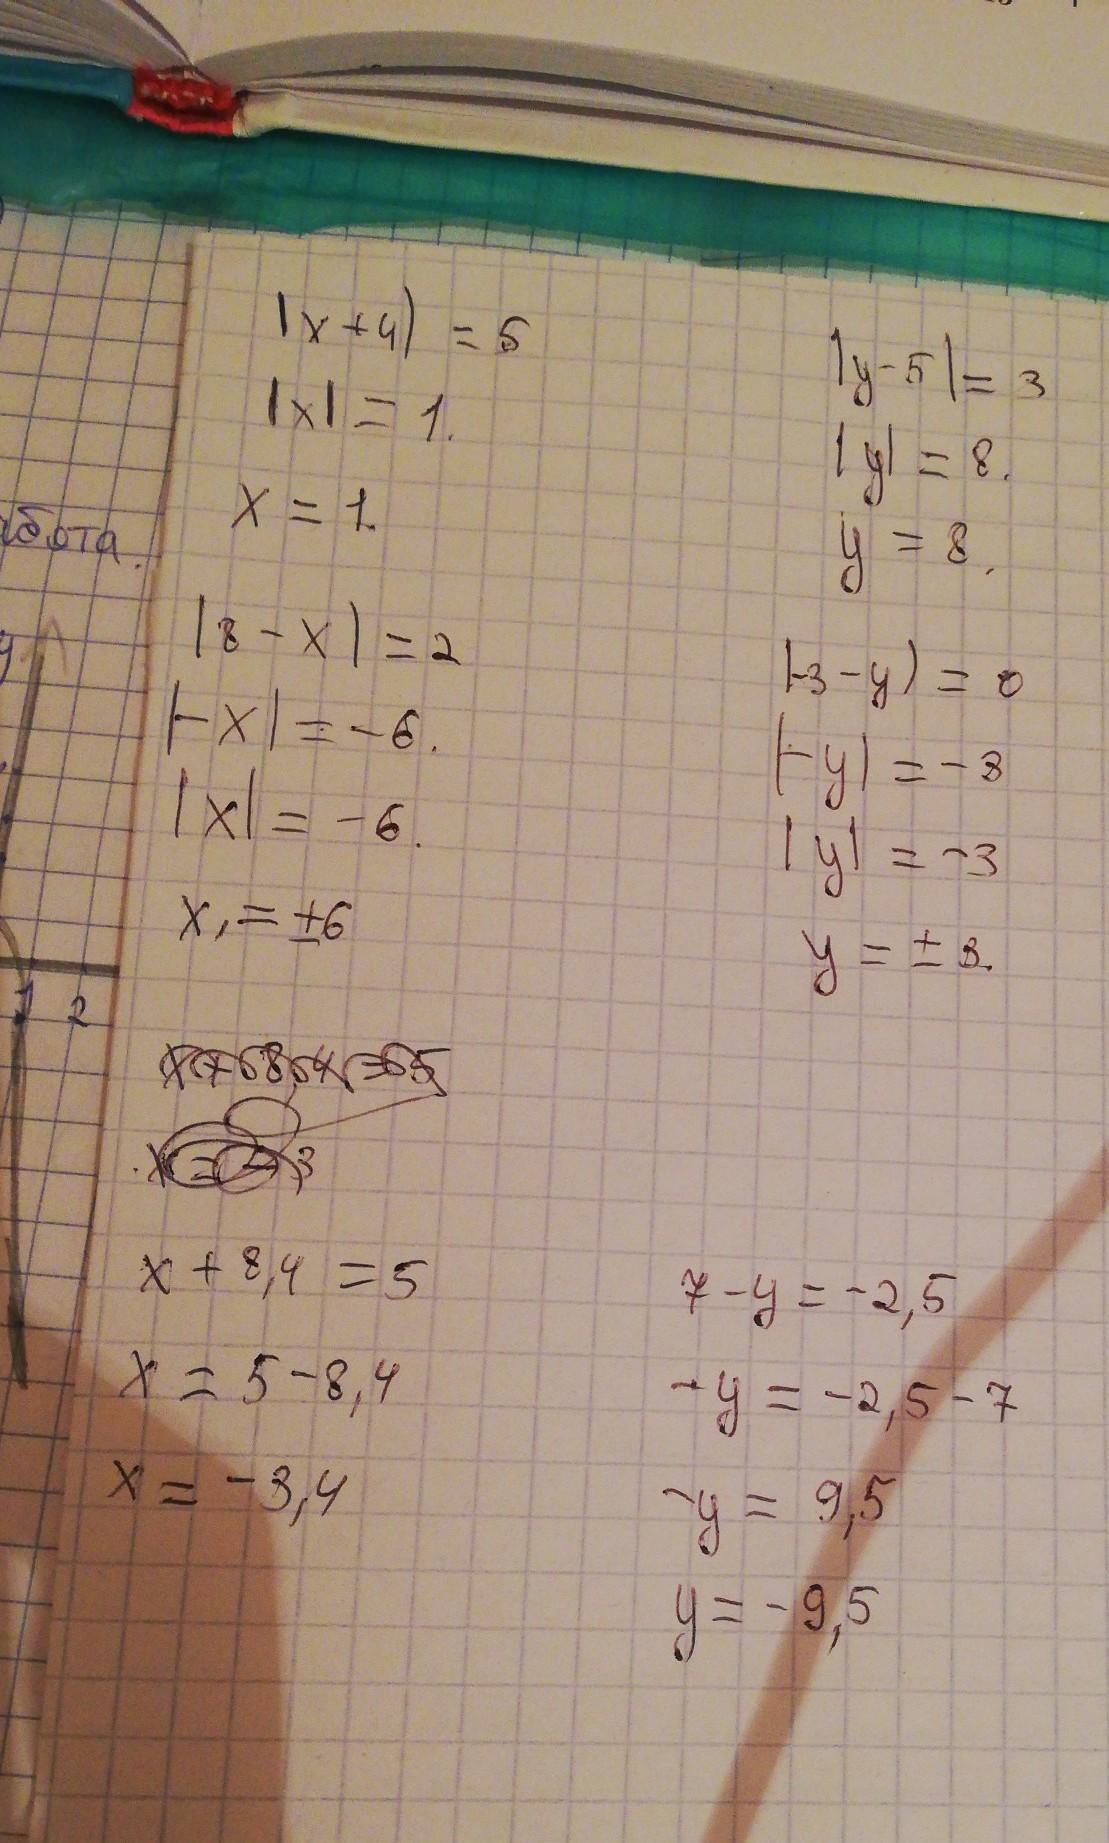 абота.
y
1 2
|x+4) = 5
|x| = 1.
x = 1.
|8 - x| = 2
|-x| = -6.
|x| = -6.
x, = ±6
x + 8,4 = 5
x = 5 - 8,4
x = -3,4
|y-5| = 3
|y| = 8.
y = 8.
|-3-y) = 0
|-y| = -3
|y| = -3
y = ±3.
7 - y = -2,5
-y = -2,5 - 7
-y = 9,5
y = -9,5